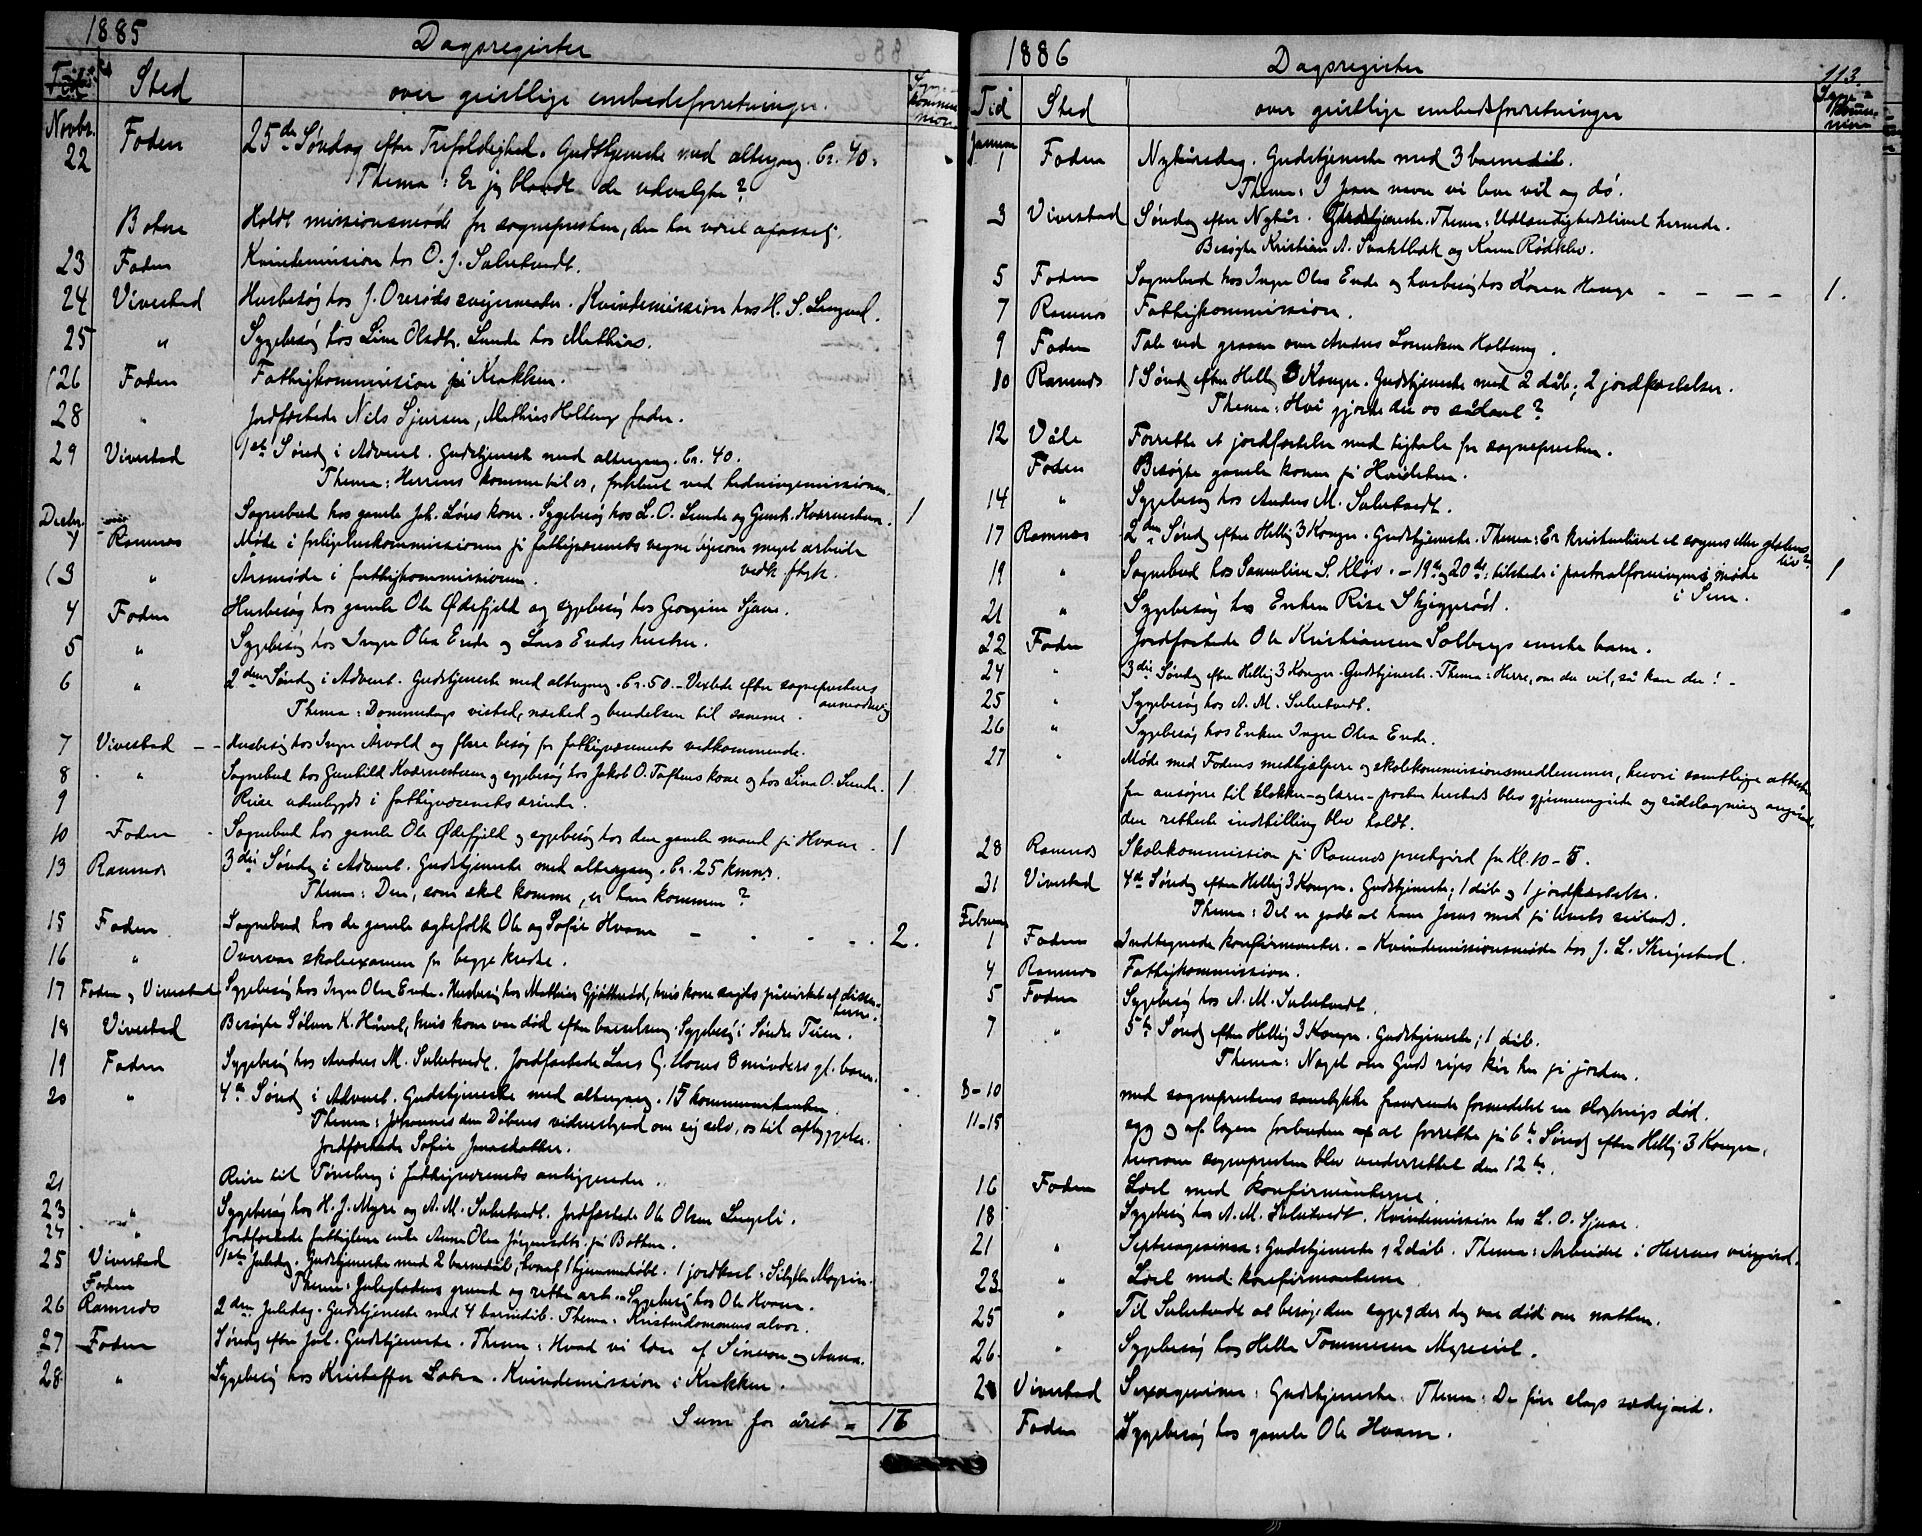 1885
Dagsregister
Tid
Sted
over geistlige embedsforretninger.
Novbr.
22 Foden 25de Søndag efter Trefoldighed. Gudstjeneste med altergang. Cr. 40.
Thema: Er jeg blandt de udvalgte?
Botne Holdt missionsmøde for sognepresten, der har været
23 Foden Kvindemission hos O. J. Sulutvedt.
24 Vivestad Husbesøg hos J. Orerøds svigermoder. Kvindemission hos H. S.
25 " Sygebesøg hos Line Olsdtr. Sunde hos Mathias.
26 Foden Fattigkommission på Krakken.
28 " Jordfæstede Nils Sjursen, Mathis Holtung fader.
29 Vivestad 1ste Sønd. i Advent. Gudstjeneste med altergang. Cr. 40.
Thema: Herrens komme til os, forklaret ved hedningemissionen.
Decbr. Sognebud hos gamle Joh. Løvs kone. Sygebesøg hos L. O. Sunde og Gunh. 1
1 Ramnes Møde i forligelseskommissionen på fattigvæsenets vegne ligesom meget arbeide
vedk. flyk.
3 " Årsmøde i fattigkommissionen.
4 Foden Husbesøg hos gamle Ole Ødefjeld og sygebesøg hos Georgine Sjaue.
5 " Sygebesøg hos Inger Olea Ende og Lars Endes hustru.
6 " 2den Søndag i Advent. Gudstjeneste med altergang. Cr. 50. - Vexlede efter sogneprestens
anmodning
Thema: Dommedags vished, nærhed og beredelsen til samme.
7 Vivestad - - Husbesøg hos Inger Arvold og flere besøg for fattigvæsenets vedkommende.
8 " Sognebud hos Gunhild og sygebesøg hos Jakob O. Toftens kone og hos Line O. Sunde. 1
9 Reise udenbygds i fattigvæsenets ærinde.
10 Foden Sognebud hos gamle Ole Ødefjeld og sygebesøg hos den gamle mand på Hvam. 1
13 Ramnes 3die Søndag i Advent. Gudstjeneste med altergang. Cr. 25 kmns.
Thema: Den, som skal komme, er han kommen?
15 Foden Sognebud hos de gamle ægtefolk Ole og Sofie Hvam - 2.
16 " Overvar skoleexamen for begge kredse.
17 Foden og Vivestad Sygebesøg hos Inger Olea Ende. Husbesøg hos Mathias Gjøtterød, hvis kone sagdes påvirket af dissen-
terne.
18 Vivestad Besøgte Sølvar K. Håvel, hvis kone var død efter barselseng. Sygebesøg i Søndre Teien.
19 Foden Sygebesøg hos Anders M. Sulutvedt. Jordfæstede Lars G. 8 måneders gl. barn.
20 " 4de Sønd. i Advent. Gudstjeneste med altergang. 15 kommunikanter.
Thema: Johannes den Døbers vidnesbyrd om sig selv, os til opbyggelse.
Jordfæstede Sofie Jonasdatter.
21 Reise til Tønsberg i fattigvæsenets anliggender.
23 " Sygebesøg hos H. J. Myre og A. M. Sulutvedt. Jordfæstede Ole Olsen
24 " Jordfæstede fattiglem enke Anne Olea Jørgensdtr. på Botten.
25 Vivestad 1ste Juledag. Gudstjeneste med 2 barnedåb, hvoraf 1 hjemmedøbt. 1 jordfæst.
Foden Thema: Juleglædens grund og rette art. - Sygebesøg hos Ole Hvam.
26 Ramnes 2den Juledag. Gudstjeneste med 4 barnedåb. Thema: Kristendommens alvor.
27 Foden Søndag efter Jul. Gudstjeneste. Thema: Hvad vi lære af Simeon og Anna.
28 " Sygebesøg hos Kristoffer Kvindemission i Krakken.
Sum for året =
1886
Dagsregister
113
Tid
Sted
over geistlige embedsforretninger
Januar
1 Foden Nytårsdag. Gudstjeneste med 3 barnedåb.
Thema: I Jesu navn vi leve vil og dø.
3 Vivestad Søndag efter Nytår. Gudstjeneste. Thema: Udlændighedslivet hernede.
Besøgte Kristian A. og Karen Rødklev.
5 Foden Sognebud hos Inger Olea Ende og husbesøg hos Karen Hauge - - - - 1.
7 Ramnes Fattigkommission.
9 Foden Tale ved graven over Anders Holtung.
10 Ramnes 1 Sønd. efter Hellig 3 Konger. Gudstjeneste med 2 dåb; 2 jordfæstelser.
Thema: Hvi gjorde du os sådant?
12 Våle Forrette et jordfæstelse med ligtale for sognepresten.
Foden Besøgte gamle konen på
14 " Sygebesøg hos Anders M. Sulutvedt.
17 Ramnes 2den Sønd. efter Hellig 3 Konger. Gudstjeneste. Thema: Er kristenlivet et sorgens eller glædens
liv?
19 " Sognebud hos Samueline S. Kløv. - 19de og 20de tilstede i pastoralforeningens møde 1
i Sem.
21 " Sygebesøg hos Enken Rise Skjeggerød.
22 Foden Jordfæstede Ole Kristiansen Solbergs eneste barn.
24 " 3die Søndag efter Hellig 3 Konger. Gudstjeneste. Thema: Herre, om du vil, så kan du! -
25 " Sygebesøg hos A. M. Sulutvedt.
26 " Sygebesøg hos Enken Inger Olea Ende.
27 " Møde med Fodens medhjælpere og skolekommissionsmedlemmer, hvori samtlige attester
fra ansøgere til klokker- og lærer-posten hersteds blev gjennemgåede og rådslagning angående
den retteste indstilling blev holdt.
28 Ramnes Skolekommission på Ramnes prestgård fra Kl. 10 - 5.
31 Vivestad 4de Sønd. efter Hellig 3 Konger. Gudstjeneste; 1 dåb og 1 jordfæstelse.
Thema: Det er godt at have Jesus med på livets seilads.
Februar
1 Foden Indtegnede konfirmanter. - Kvindemissionsmøde hos J. L. Skjegstad.
4 Ramnes Fattigkommission.
5 Foden Sygebesøg hos A. M. Sulutvedt.
7 " 5te Sønd. efter Hellig 3 Konger. Gudstjeneste; 1 dåb.
Thema: Noget om Guds riges kår her på jorden.
8-10 med sogneprestens samtykke fraværende formedelst en slægtnings død.
11-15 syg og af lægen forbuden at forrette på 6te Sønd. efter Hellig 3 Konger,
hvorom sognepresten blev underrettet den 12te.
16 Foden Læst med konfirmanterne.
18 Sygebesøg hos A. M. Sulutvedt. Kvindemission hos L. O. Sjaue.
21 " Septuagesima: Gudstjeneste, 2 dåb. Thema: Arbeidet i Herrens vingård.
23 " Læst med konfirmanterne
25 " Til Sulutvedt at besøge den syge, der dog var død om natten.
26 " Sygebesøg hos Helle Tommesen
28 Vivestad Sexagesima: Gudstjeneste. Thema: De fire slags sædejord.
Foden Sygebesøg hos gamle Ole Hvam.